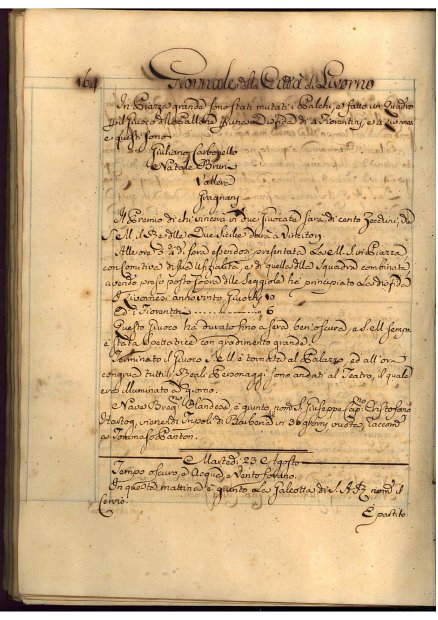 164 Giornale della Città di Livorno
In Piazza grande sono stati mutati i Palchi, e fatto un Quadro
p il Giuoco del Pallone p una Disfida di 4 Fiorentini, e 4 Livornesi
e questi sono
Giuliano Carbonello
Natale Bruni
Valleri
Pragnani
Il Premio di chi vincerà in due Giuocate sarà di cento Zecchini, che
S. M. il Rè delle Due Sicilie darà a Vincitori
Alle ore 5 ½ di sera essendosi presentata la M.S. in Piazza
con Comitiva di sua Ufizialità, e di quella della Squadra combinata
avendo preso posto sopra delle Seggiole ha principiato la disfida
I Livornesi anno vinto Giuochi 10
Ed i Fiorentini .......... 6
Questo Giuoco ha durato fino a sera ben'oscura, e S.M. sempre
è stata spettatrice con gradimento grande.
Terminato il Giuoco S.M. è tornata al Palazzo, ed all'ora
congrua tutti li Reali Personaggi sono andati al Teatro, il quale
era illuminato a Giorno.
Nave Olandese è giunto, nom. S. Giuseppe Cap. Cristofano
viene di Tripoli di Barberia in 36 giorni vuota, raccom.
a Tommaso Panton.
Martedì 23 Agosto
Tempo oscuro, e Acqua, e Vento fuorano
In questa mattina è giunto la Galeotta di S. A. R. nom. il
Cervio.
È partito